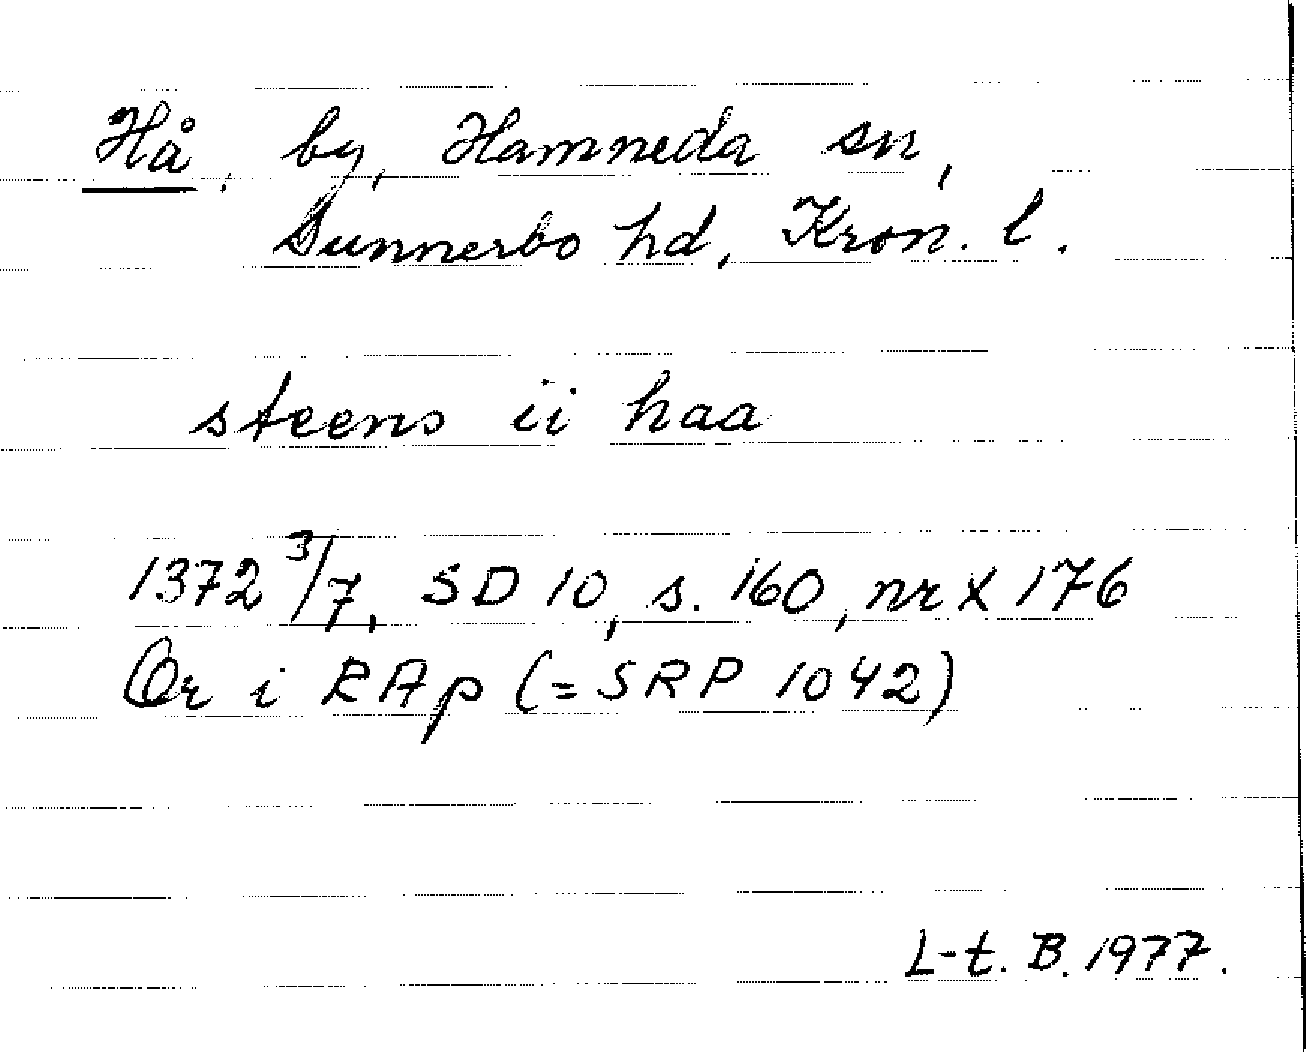 Hå, by, Hamneda sn,
Sunnerbo hd, Kron. l.
steens ii haa
1372 3/7, SD 10, s. 160, nr X 176
Or i RAp (= SRP 1042)
L-t. B. 1977.